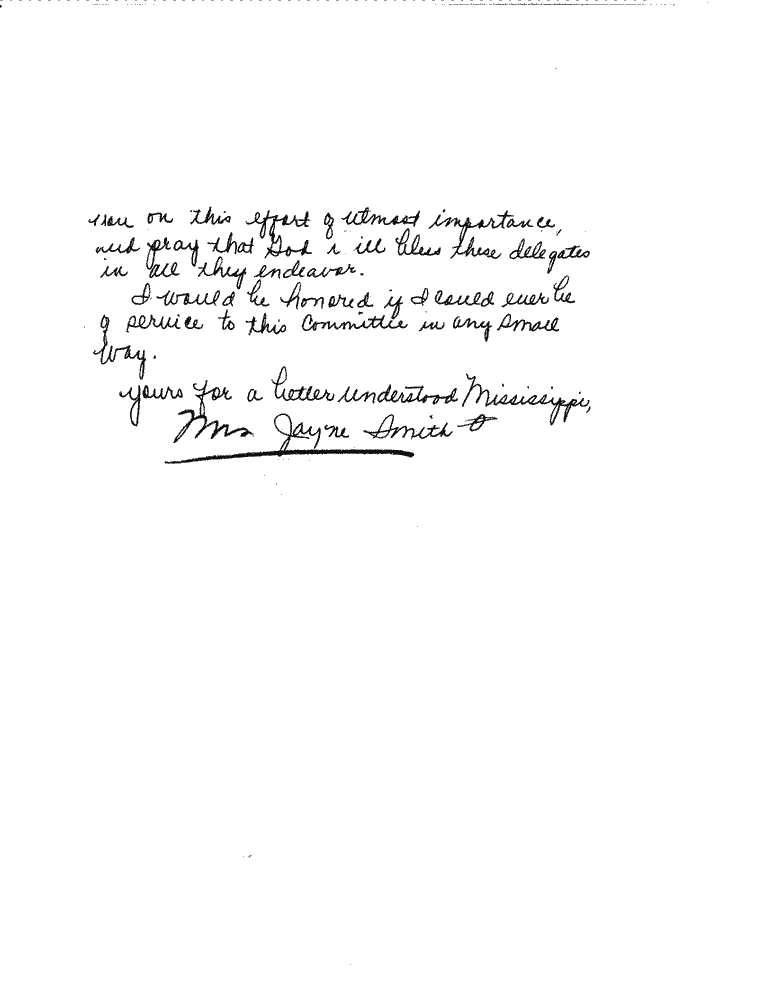 you on this effort of utmost importance,
and pray that God will bless these delegates
in all they endeavor.
I would be honored if I could ever be
of service to this Committee in any small
way.
Yours for a better understood Mississippi,
Mrs Jayne Smith